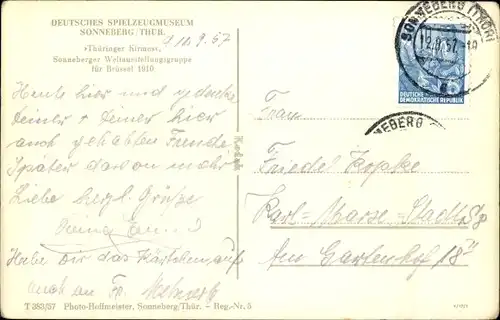 DEUTSCHES SPIELZEUGMUSEUM
SONNEBERG/THÜR.
»Thüringer Kirmes«,
Sonneberger Weltausstellungsgruppe
für Brüssel 1910
11.9.57
Heute hier und gedenke
Deiner + Deiner hier
auch gehabten Freude
Später davon mehr
Liebe herzl. Grüße
Hebe Dir das Kärtchen auf
auch an Fr.
T 383/57 Photo-Hoffmeister, Sonneberg/Thür. - Reg.-Nr. 5
SONNEBERG (THÜR)
12.9.57
DEUTSCHE
DEMOKRATISCHE REPUBLIK
NEBERG
Frau
Friedel Kopke
Karl-Marx-Stadt
Am Gartenhof 18